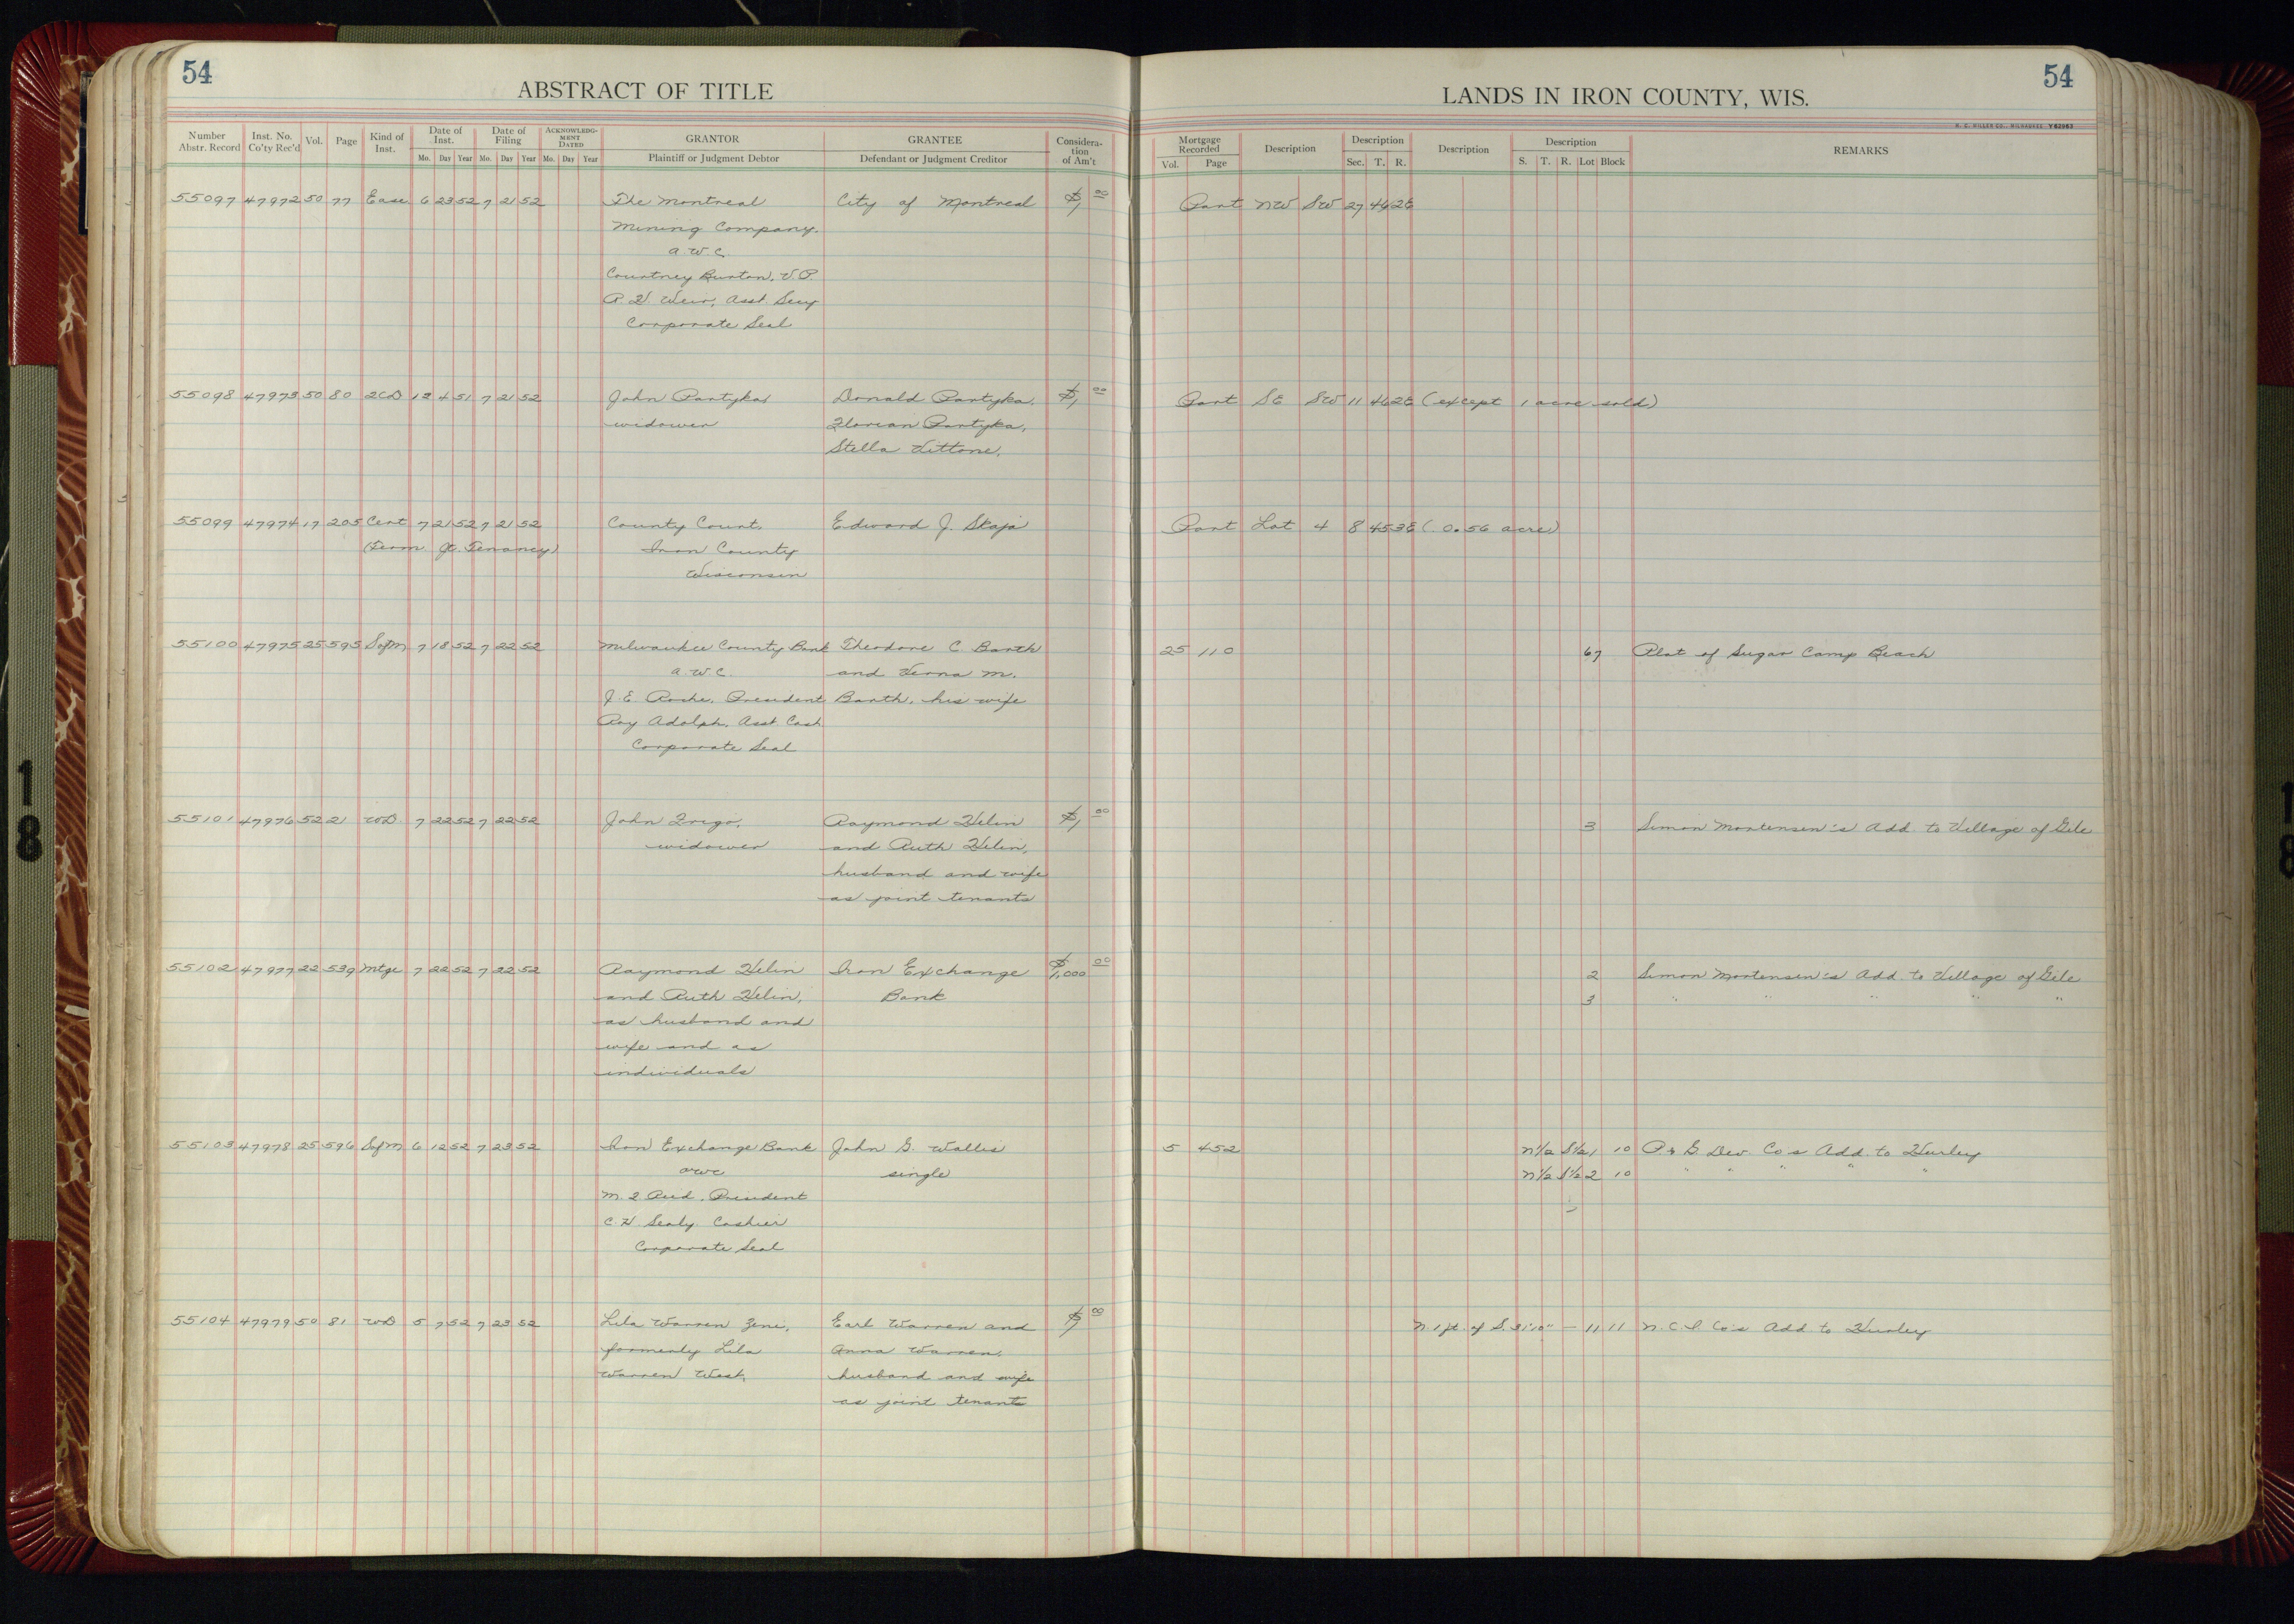 54
54
ABSTRACT OF TITLE
LANDS IN IRON COUNTY, WIS.
H. C. MILLER CO., MILWAUKEE Y62963
Number Abstr. Record | Inst. No. Co'ty Rec'd | Vol. | Page | Kind of Inst. | Date of Inst. Mo. Day Year | Date of Filing Mo. Day Year | ACKNOWLEDGMENT DATED Mo. Day Year | GRANTOR Plaintiff or Judgment Debtor | GRANTEE Defendant or Judgment Creditor | Consideration of Am't | Mortgage Recorded Vol. Page | Description | Description Sec. T. R. | Description | Description S. T. R. Lot Block | REMARKS
55097 47972 50 77 Ease 6 23 52 7 21 52 The Montreal City of Montreal $1, 00 Part NW SW 27 46 2E
Mining Company.
a.w.c.
Courtney Burton, V.P.
Weir, Asst. Secy
Corporate Seal
55098 47973 50 80 2CD 12 4 51 7 21 52 John Partyka, Donald Partyka, $1, 00 Part SE SW 11 46 2E (except 1 acre sold)
widower Florian Partyka,
Stella Vittone.
55099 47974 17 205 Cert 7 21 52 7 21 52 County Court, Edward J. Skaja Part Lot 4 8 45 3E (0.56 acre)
(Term. Jt. Tenancy) Iron County
Wisconsin
55100 47975 25 595 SofM 7 18 52 7 22 52 Milwaukee County Bank Theodore C. Barth 25 110 67 Plat of Sugar Camp Beach
a.w.c. and Verna M.
J. E. Roche, President Barth, his wife
Roy Adolph, Asst Cash
Corporate Seal
55101 47976 52 21 WD. 7 22 52 7 22 52 John Frigo, Raymond Helin $1, 00 3 Simon Mortensen's Add. to Village of Gile
widower and Ruth Helin,
husband and wife
as joint tenants
55102 47977 22 539 Mtge 7 22 52 7 22 52 Raymond Helin Iron Exchange $1,000 00 2 Simon Mortensen's Add. to Village of Gile
and Ruth Helin, Bank 3 " " " " "
as husband and
wife and as
individuals
55103 47978 25 596 SofM 6 12 52 7 23 52 Iron Exchange Bank John G. Wallis 5 452 N½ S½ 1 10 P & G. Dev. Co's Add. to Hurley
awc single N½ S½ 2 10 " " " " "
President
Cashier
Corporate Seal
55104 47979 50 81 WD 5 7 52 7 23 52 Lila Warren Zeni, Earl Warren and $1, 00 N. 1 ft. of S. 31'10" — 11 11 N. C. I. Co's Add to Hurley
formerly Lila Anna Warren,
Warren West, husband and wife
as joint tenants
18